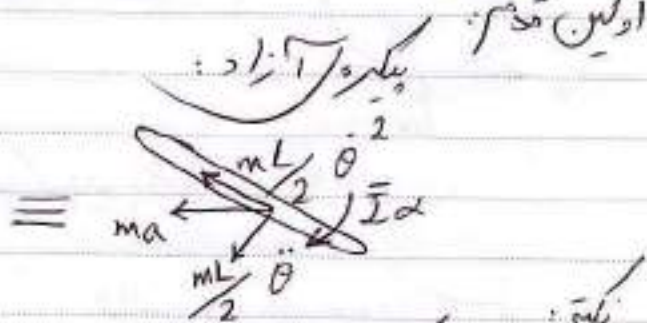 اولین قدم:
پیکره آزاد:
≡
mL/2 θ̇²
ma
Īα
mL/2 θ̈
نکته: